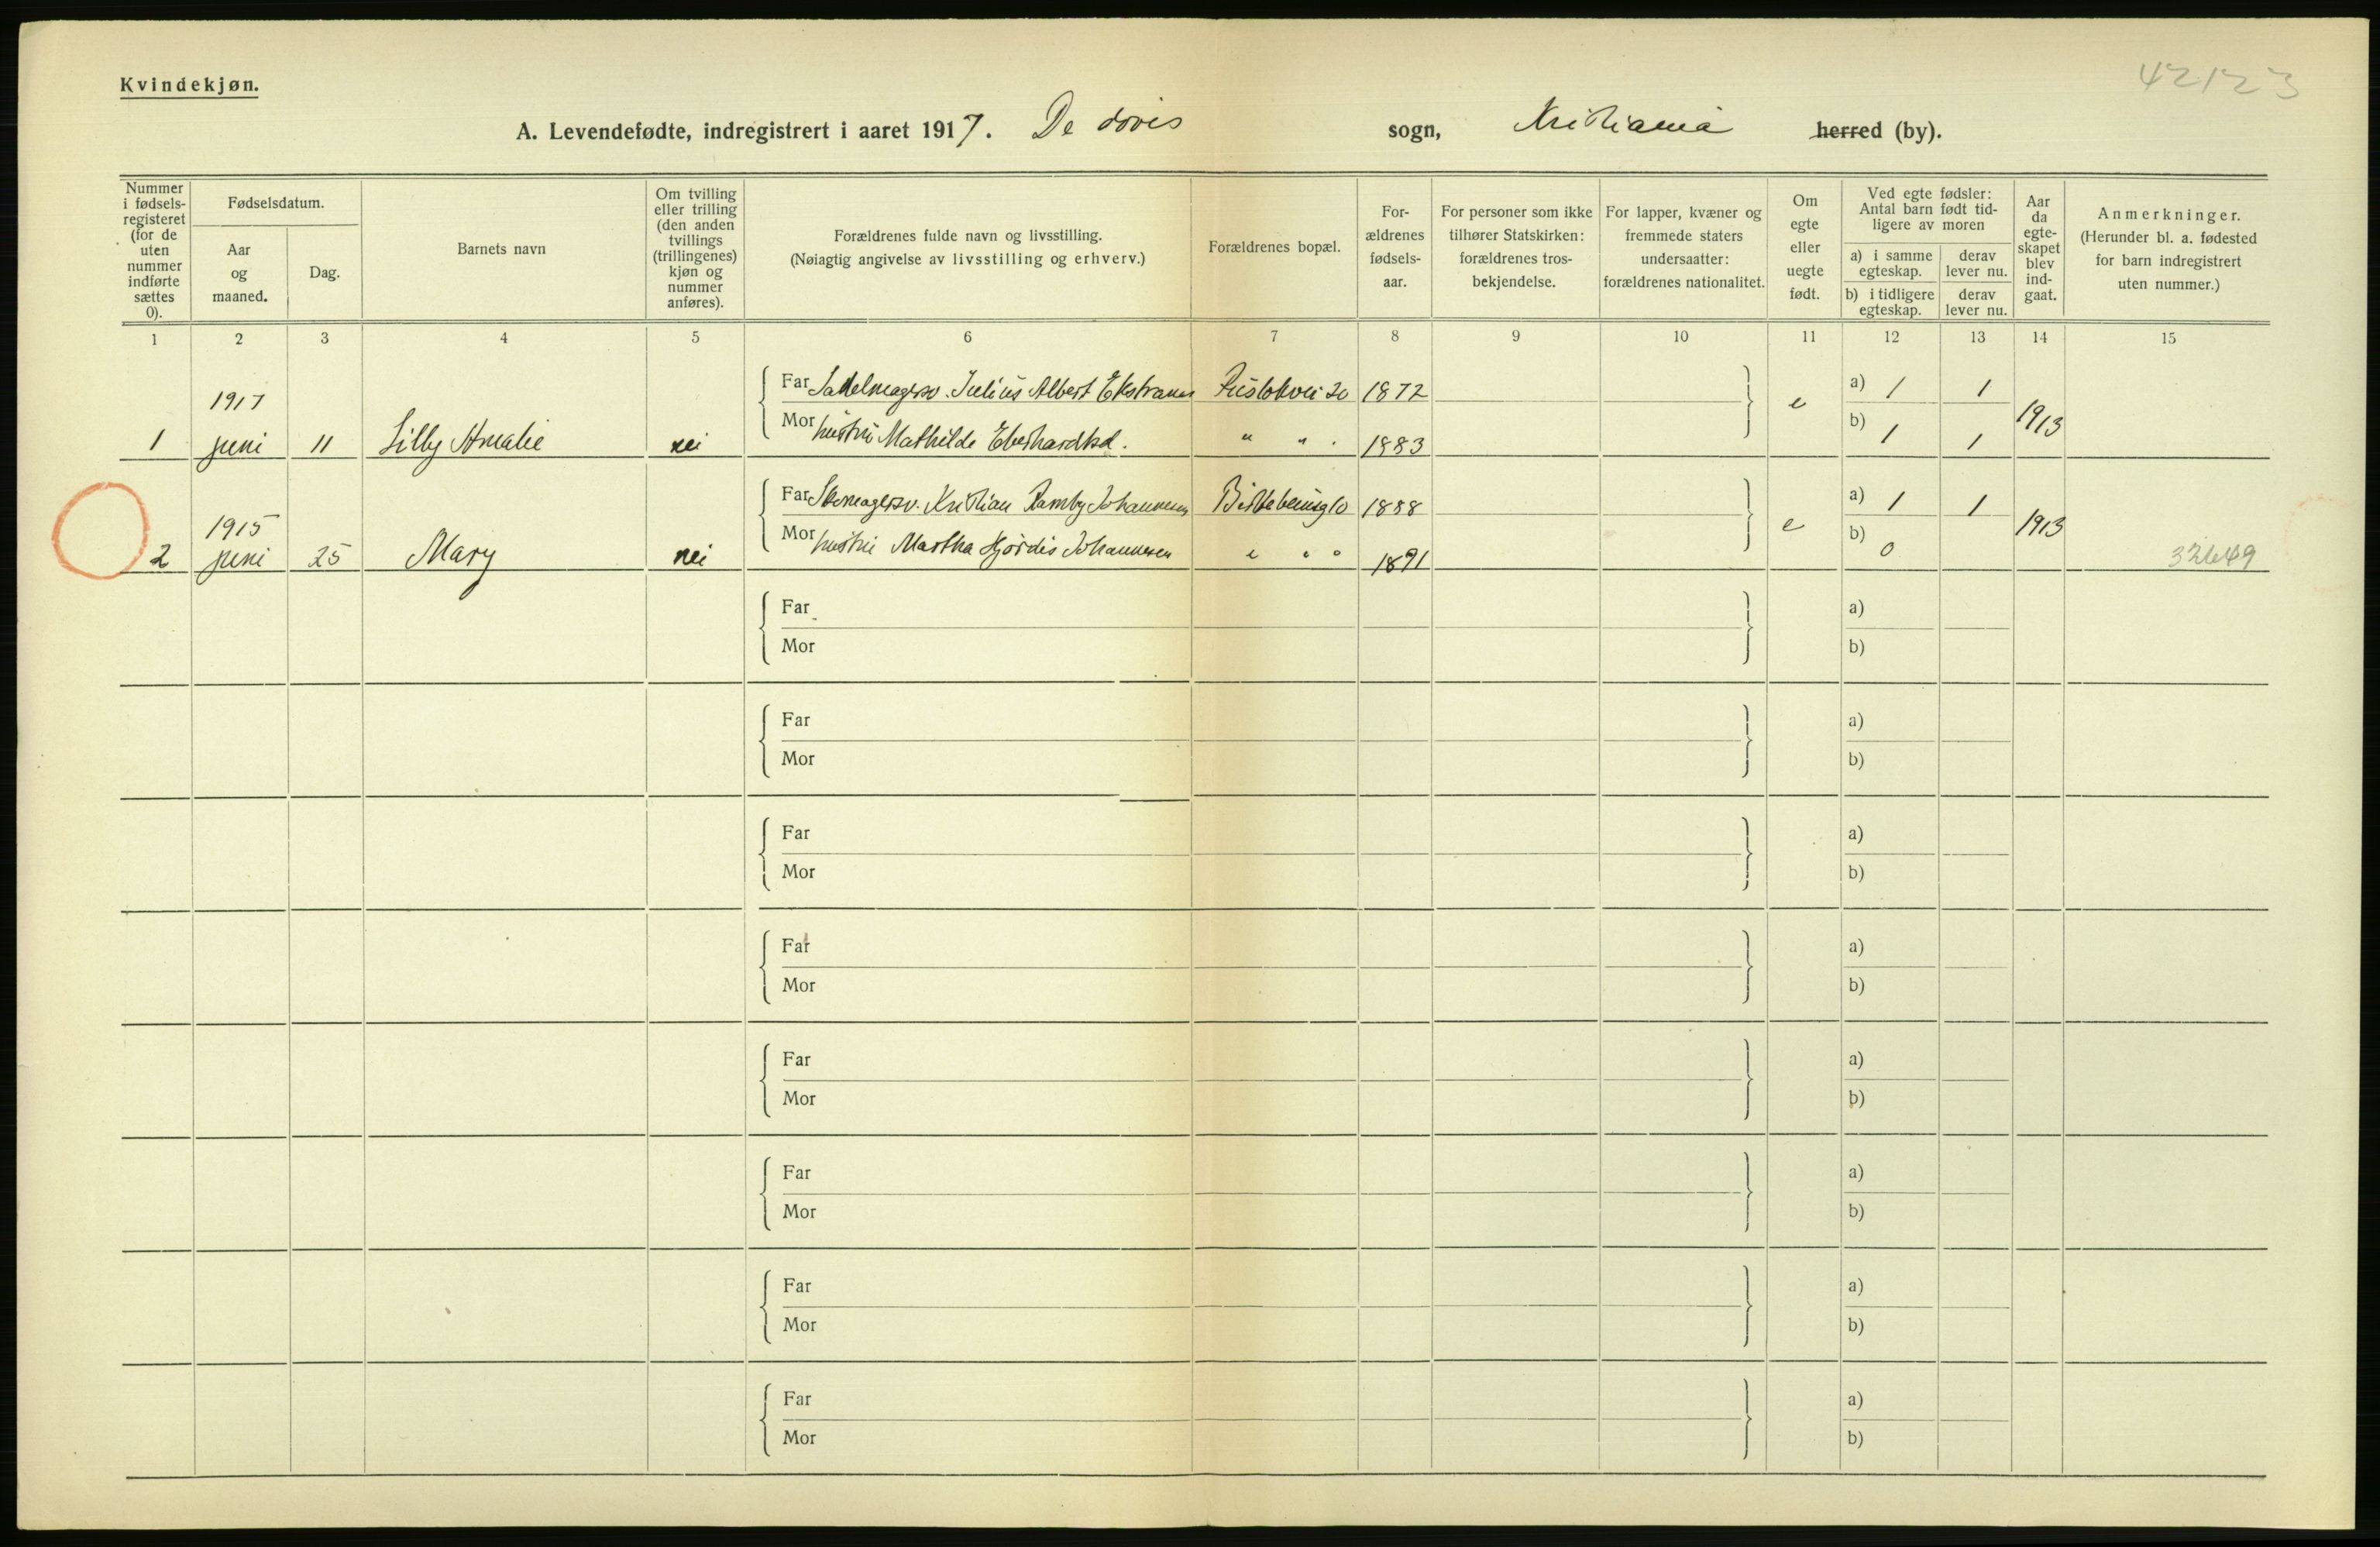 Kvindekjøn.
42123
A. Levendefødte, indregistrert i aaret 1917. De døves sogn, Kristiania herred (by).
Nummer i fødsels-registeret (for de uten nummer indførte sættes 0).
Fødselsdatum.
Aar og maaned.
Dag.
Barnets navn
Om tvilling eller trilling (den anden tvillings (trillingenes) kjøn og nummer anføres).
Forældrenes fulde navn og livsstilling.
(Nøiagtig angivelse av livsstilling og erhverv.)
Forældrenes bopæl.
For-ældrenes fødsels-aar.
For personer som ikke tilhører Statskirken: forældrenes tros-bekjendelse.
For lapper, kvæner og fremmede staters undersaatter: forældrenes nationalitet.
Om egte eller uegte født.
Ved egte fødsler: Antal barn født tid-ligere av moren
a) i samme egteskap.
derav lever nu.
b) i tidligere egteskap.
derav lever nu.
Aar da egte-skapet blev ind-gaat.
Anmerkninger.
(Herunder bl. a. fødested for barn indregistrert uten nummer.)
1 2 3 4 5 6 7 8 9 10 11 12 13 14 15
Far Sadelmagersv. Julius Albert Ekstrand 20 1872 a) 1 1
1917
1 juni 11 Lilly Amalie nei Mor hustru Mathilde Eberhardtsd. " " . 1883 e b) 1 1 1913
Far Skomagersv. Kristian Ramby Johannesen Birkebeinerg 10 1888 a) 1 1
1915
2 juni 25 Mary nei Mor hustru Martha Hjørdis Johannesen " " " 1891 e b) 0 1913 32649
Far a)
Mor b)
Far a)
Mor b)
Far a)
Mor b)
Far a)
Mor b)
Far a)
Mor b)
Far a)
Mor b)
Far a)
Mor b)
Far a)
Mor b)